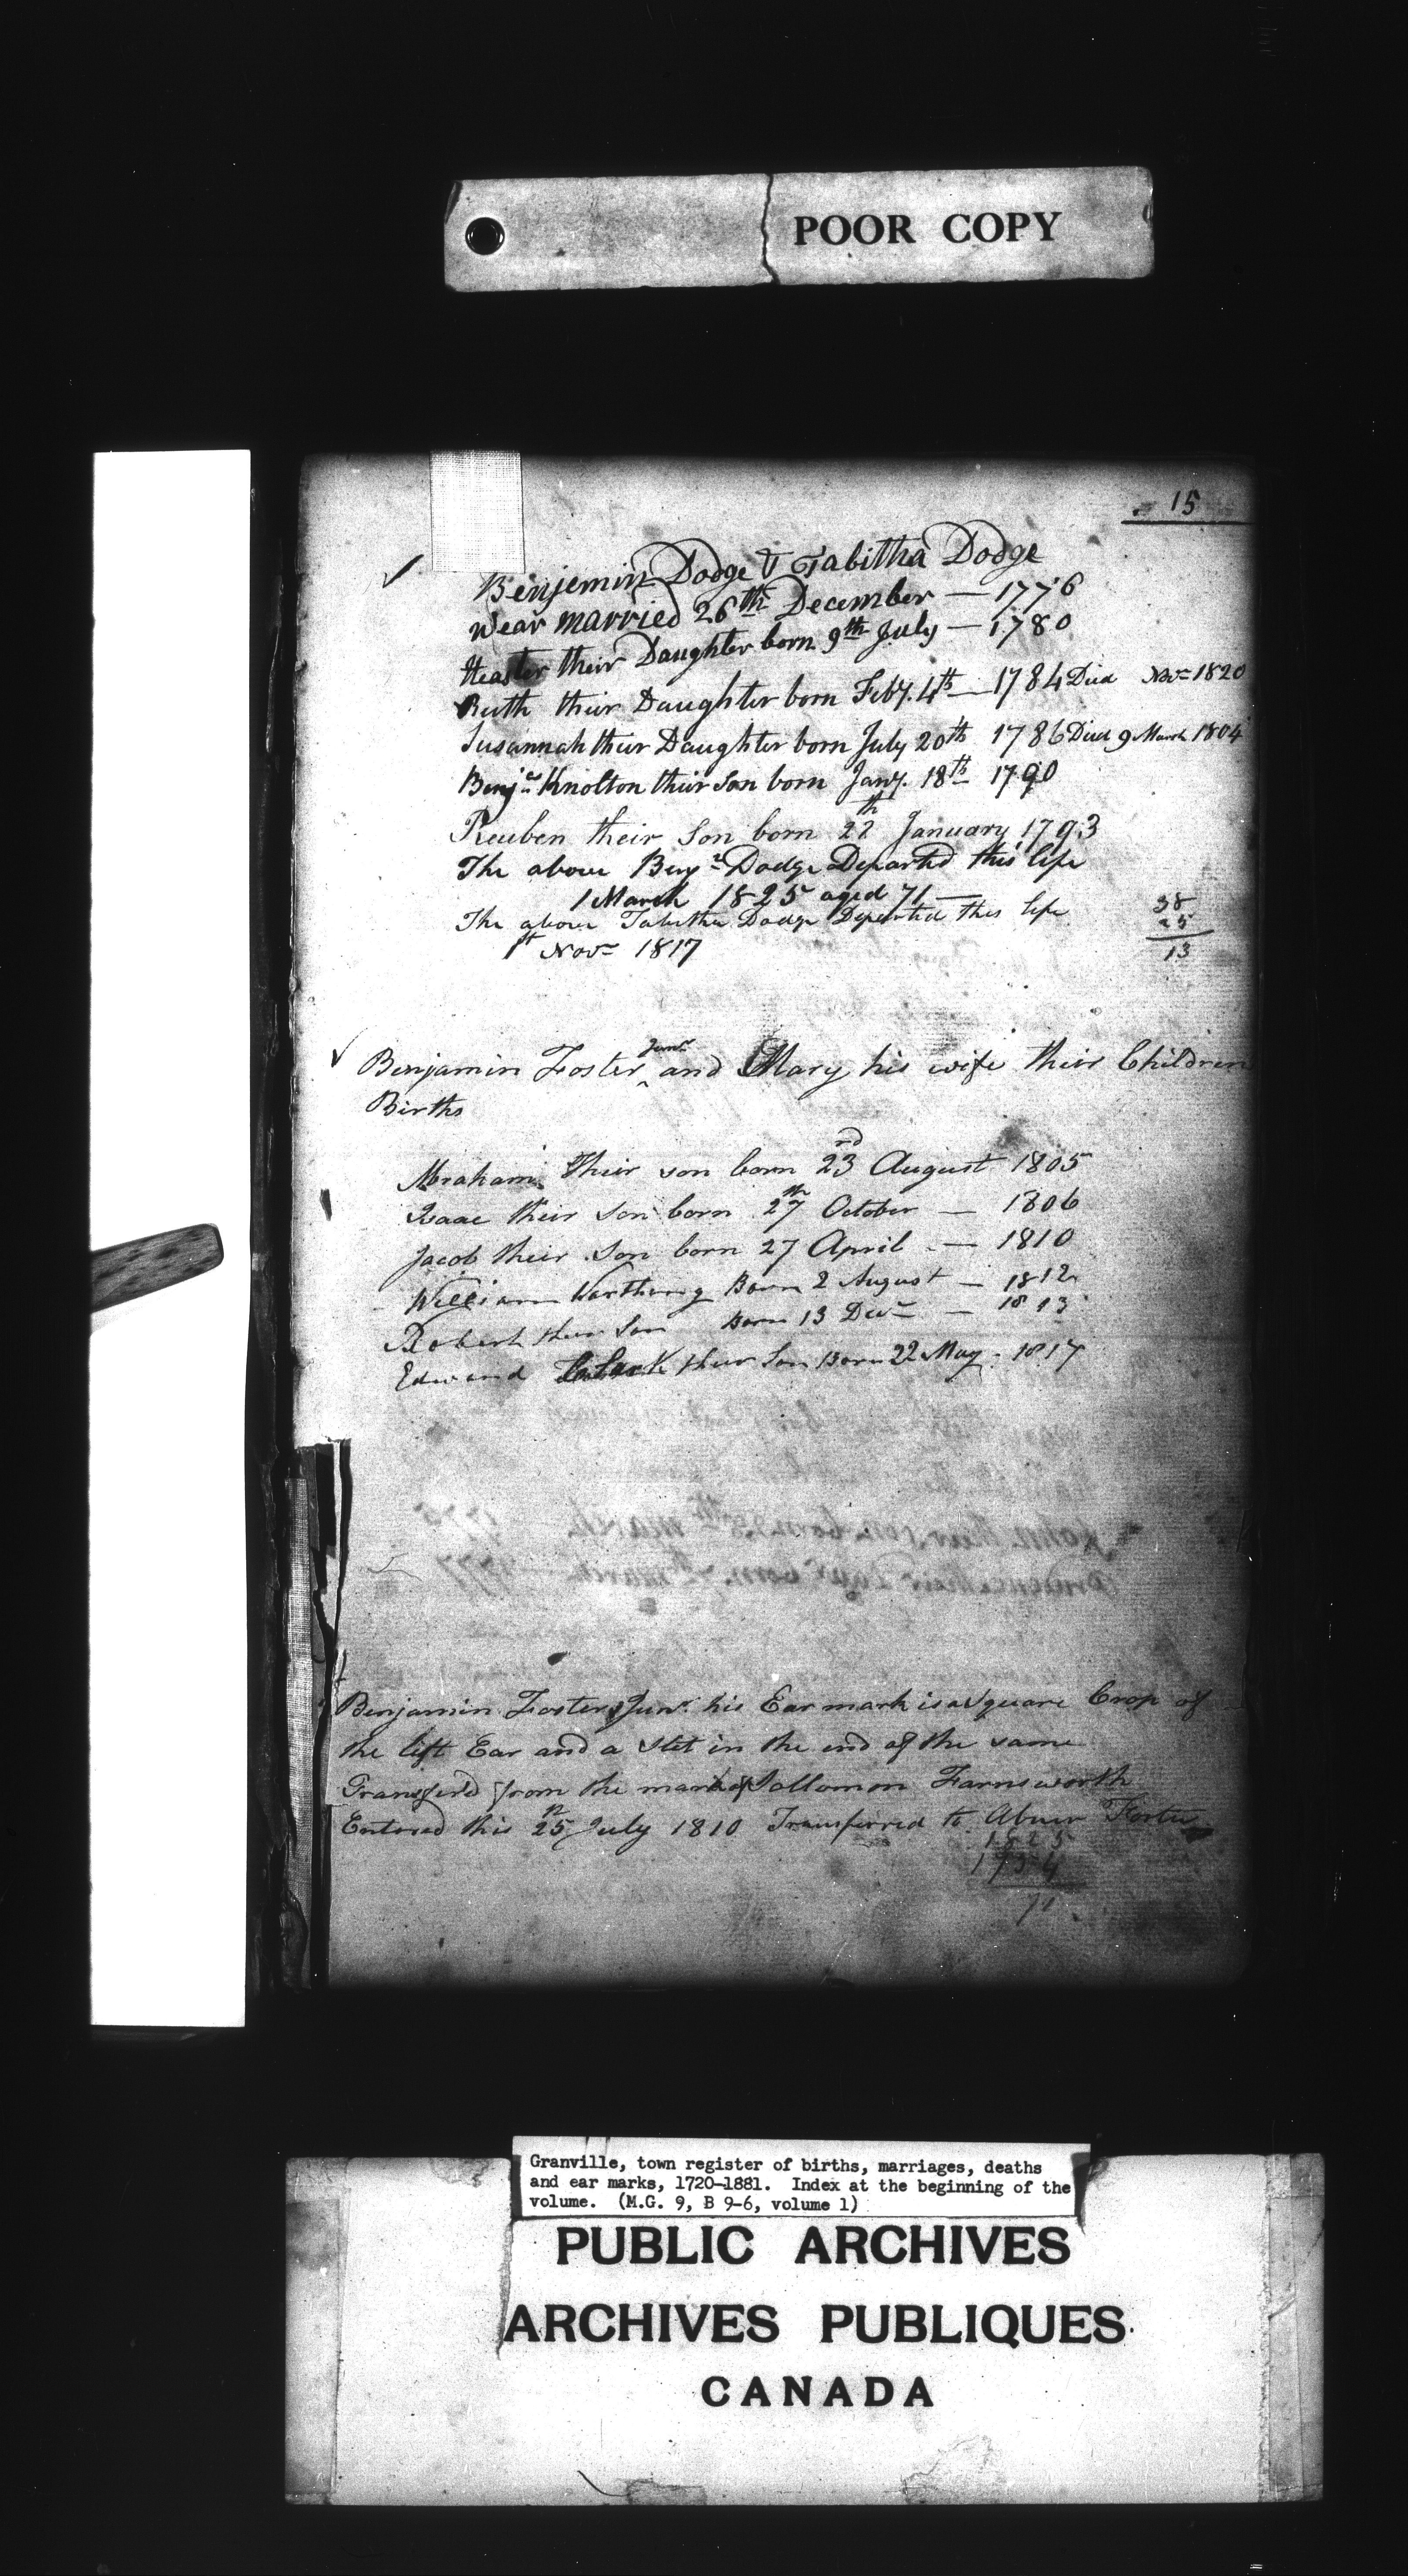 POOR COPY
15
Benjemin Dodge & Tabitha Dodge
wear married 26th December — 1776
Heaster their Daughter born 9th July — 1780
Ruth their Daughter born Feby. 4th — 1784 Died Novr 1820
Susannah their Daughter born July 20th 1786 Died 9 March 1804
Benjn Knolton their son born Jany. 18th 1790
Reuben their Son born 22th January 1793
The above Benjn Dodge Departed this life
1 March 1825 aged 71 —
The above Tabitha Dodge Departed this life
1st Novr 1817
38
25
13
Benjamin Foster Junr and Mary his wife their Children
Births
Abraham Their son born 23rd August 1805
Isaac their Son born 27th October — 1806
Jacob their Son born 27 April — 1810
William Born 2 August — 1812
Robert their Son Born 13 Decr — 1813
Edward Clark their Son Born 22 May - 1817
Benjamin Foster Junr. his Ear mark is a Square Crop of
the left Ear and a slit in the end of the same
Transferd from the mark of Sollomon Farnsworth
Entered this 25th July 1810 Transferred to Abner Foster
1825
1754
71
Granville, town register of births, marriages, deaths
and ear marks, 1720-1881. Index at the beginning of the
volume. (M.G. 9, B 9-6, volume 1)
PUBLIC ARCHIVES
ARCHIVES PUBLIQUES
CANADA